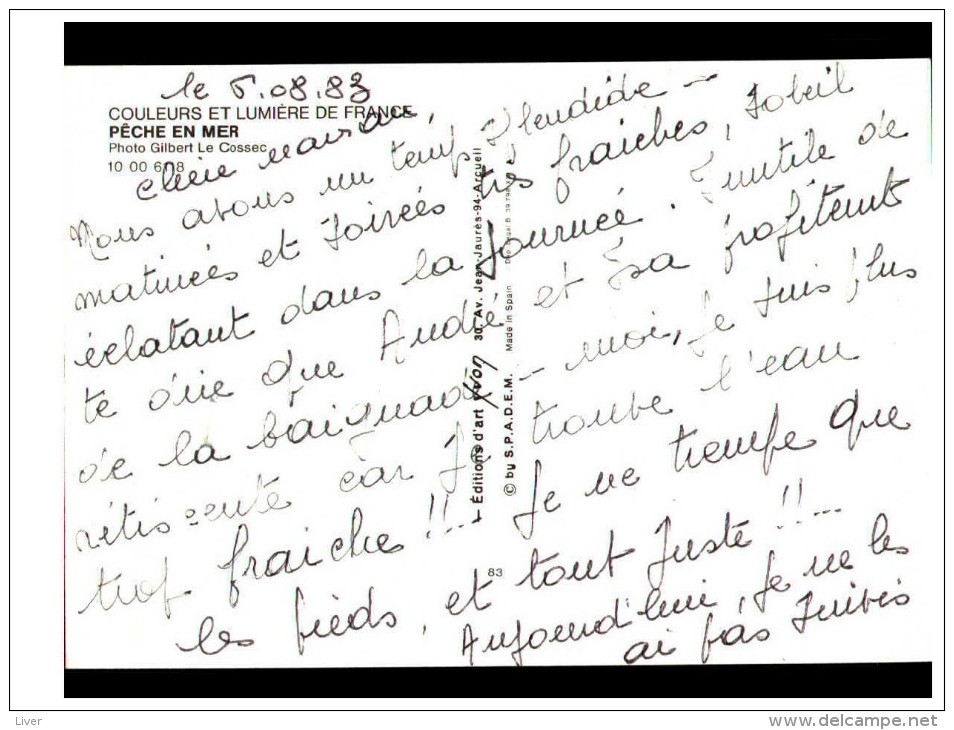 le 5.08.83
COULEURS ET LUMIÈRE DE FRANCE
PÊCHE EN MER
Photo Gilbert Le Cossec
10 00 6
chère
Nous avons un temps splendide --
matinées et soirées très fraiches, soleil
éclatant dans la journée. Inutile de
te dire que André et Isa profitent
de la baignade -- moi, je suis plus
réticente car je trouve l'eau
trop fraiche !!... Je ne trempe que
les pieds, et tout juste !!...
Aujourd'hui, je ne les
ai pas suivis
Éditions d'art yvon 30, Av. Jean-Jaurès-94-Arcueil
© by S.P.A.D.E.M. Made in Spain
83
Liver
www.delcampe.net